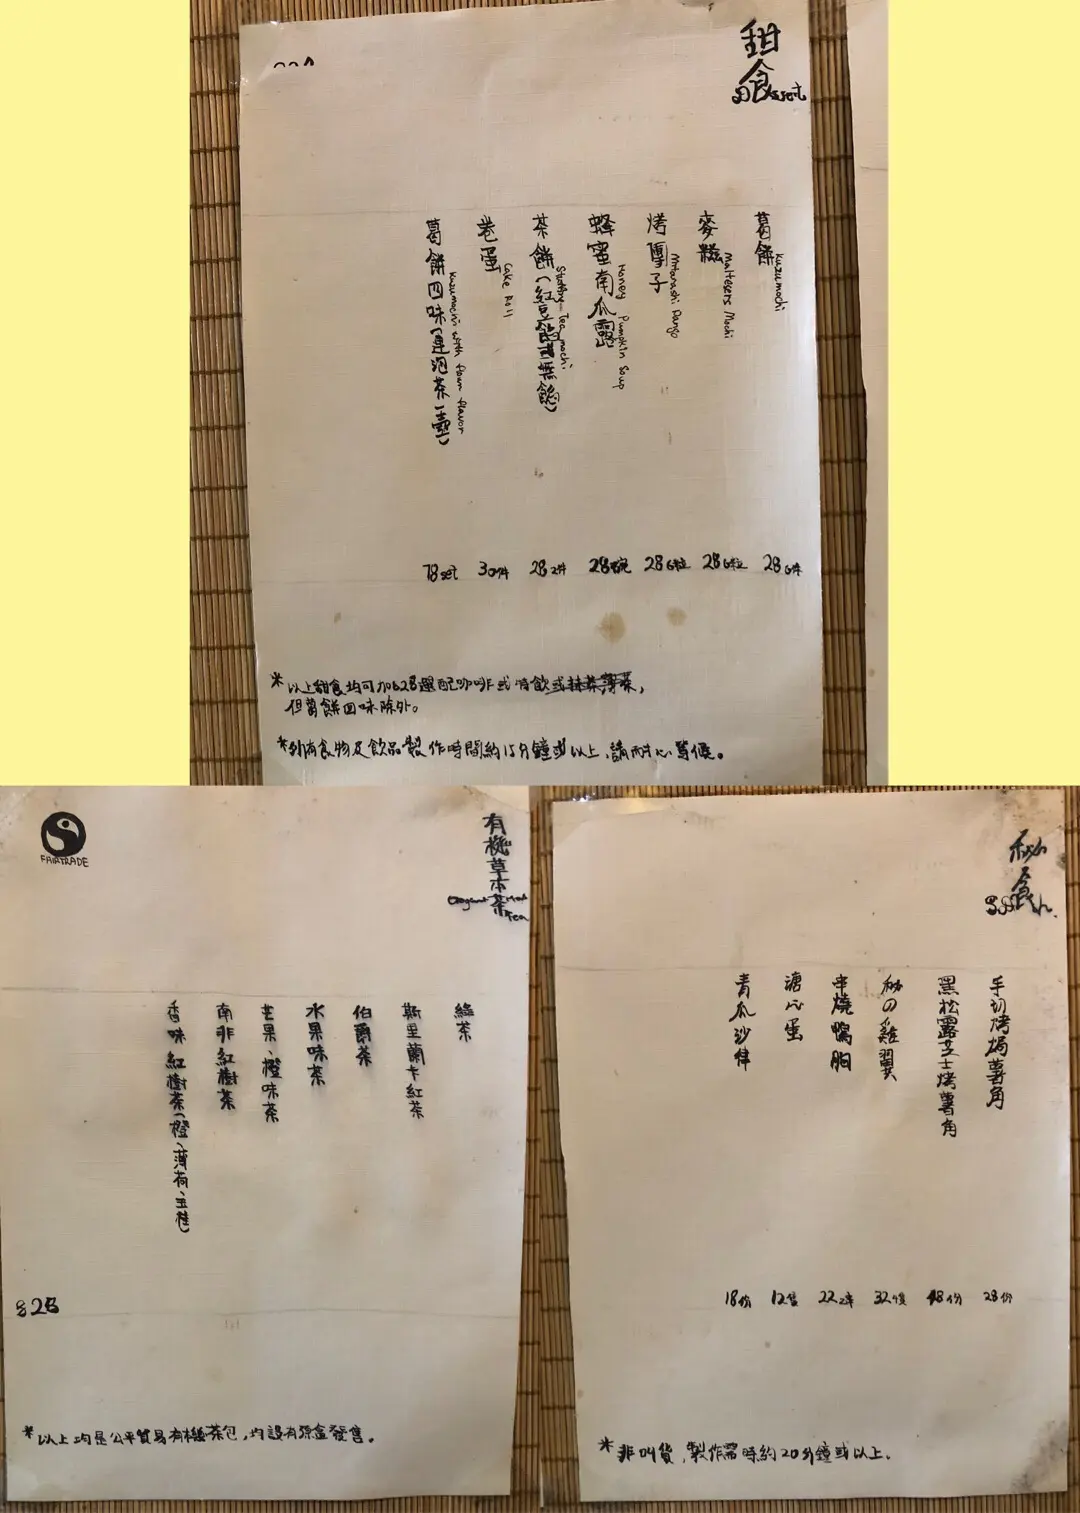 甜食
Dessert
葛餅
Kuzumochi
28 6件
麥糍
Maltesers Mochi
28 6粒
烤團子
Mitarashi Dango
28 6粒
蜂蜜南瓜露
Honey Pumpkin Soup
28
茶餅(紅豆餡/無餡)
Tea mochi
28 2件
卷蛋
Cake Roll
30
葛餅四味(連泡茶一壺)
Kuzumochi with four flavor
78 set
*以上甜食均可加$28選配咖啡或特飲或抹茶薄茶,
但葛餅四味除外。
*所有食物及飲品製作時間約15分鐘或以上,請耐心等候。
FAIRTRADE
有機草本茶
Tea
綠茶
斯里蘭卡紅茶
伯爵茶
水果味茶
芒果、橙味茶
南非紅樹茶
香味紅樹茶(橙、薄荷、玉桂)
$28
*以上均是公平貿易有機茶包,均設有原盒發售。
秘食
手切烤焗薯角
28份
黑松露芝士烤薯角
48份
秘の雞翼
32
串燒鴨胸
22 2串
溏心蛋
12隻
青瓜沙律
18份
*非叫貨,製作需時約20分鐘或以上.